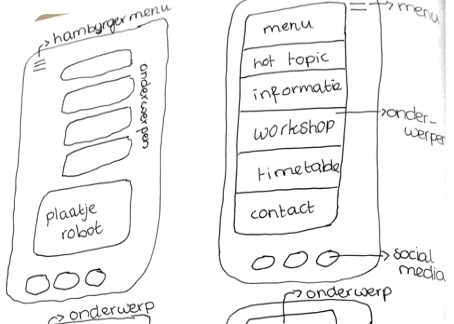 hamburger menu
onderwerpen
plaatje
robot
onderwerp
menu
menu
hot topic
informatie
workshop
timetable
contact
onder-
werpen
social
media
onderwerp